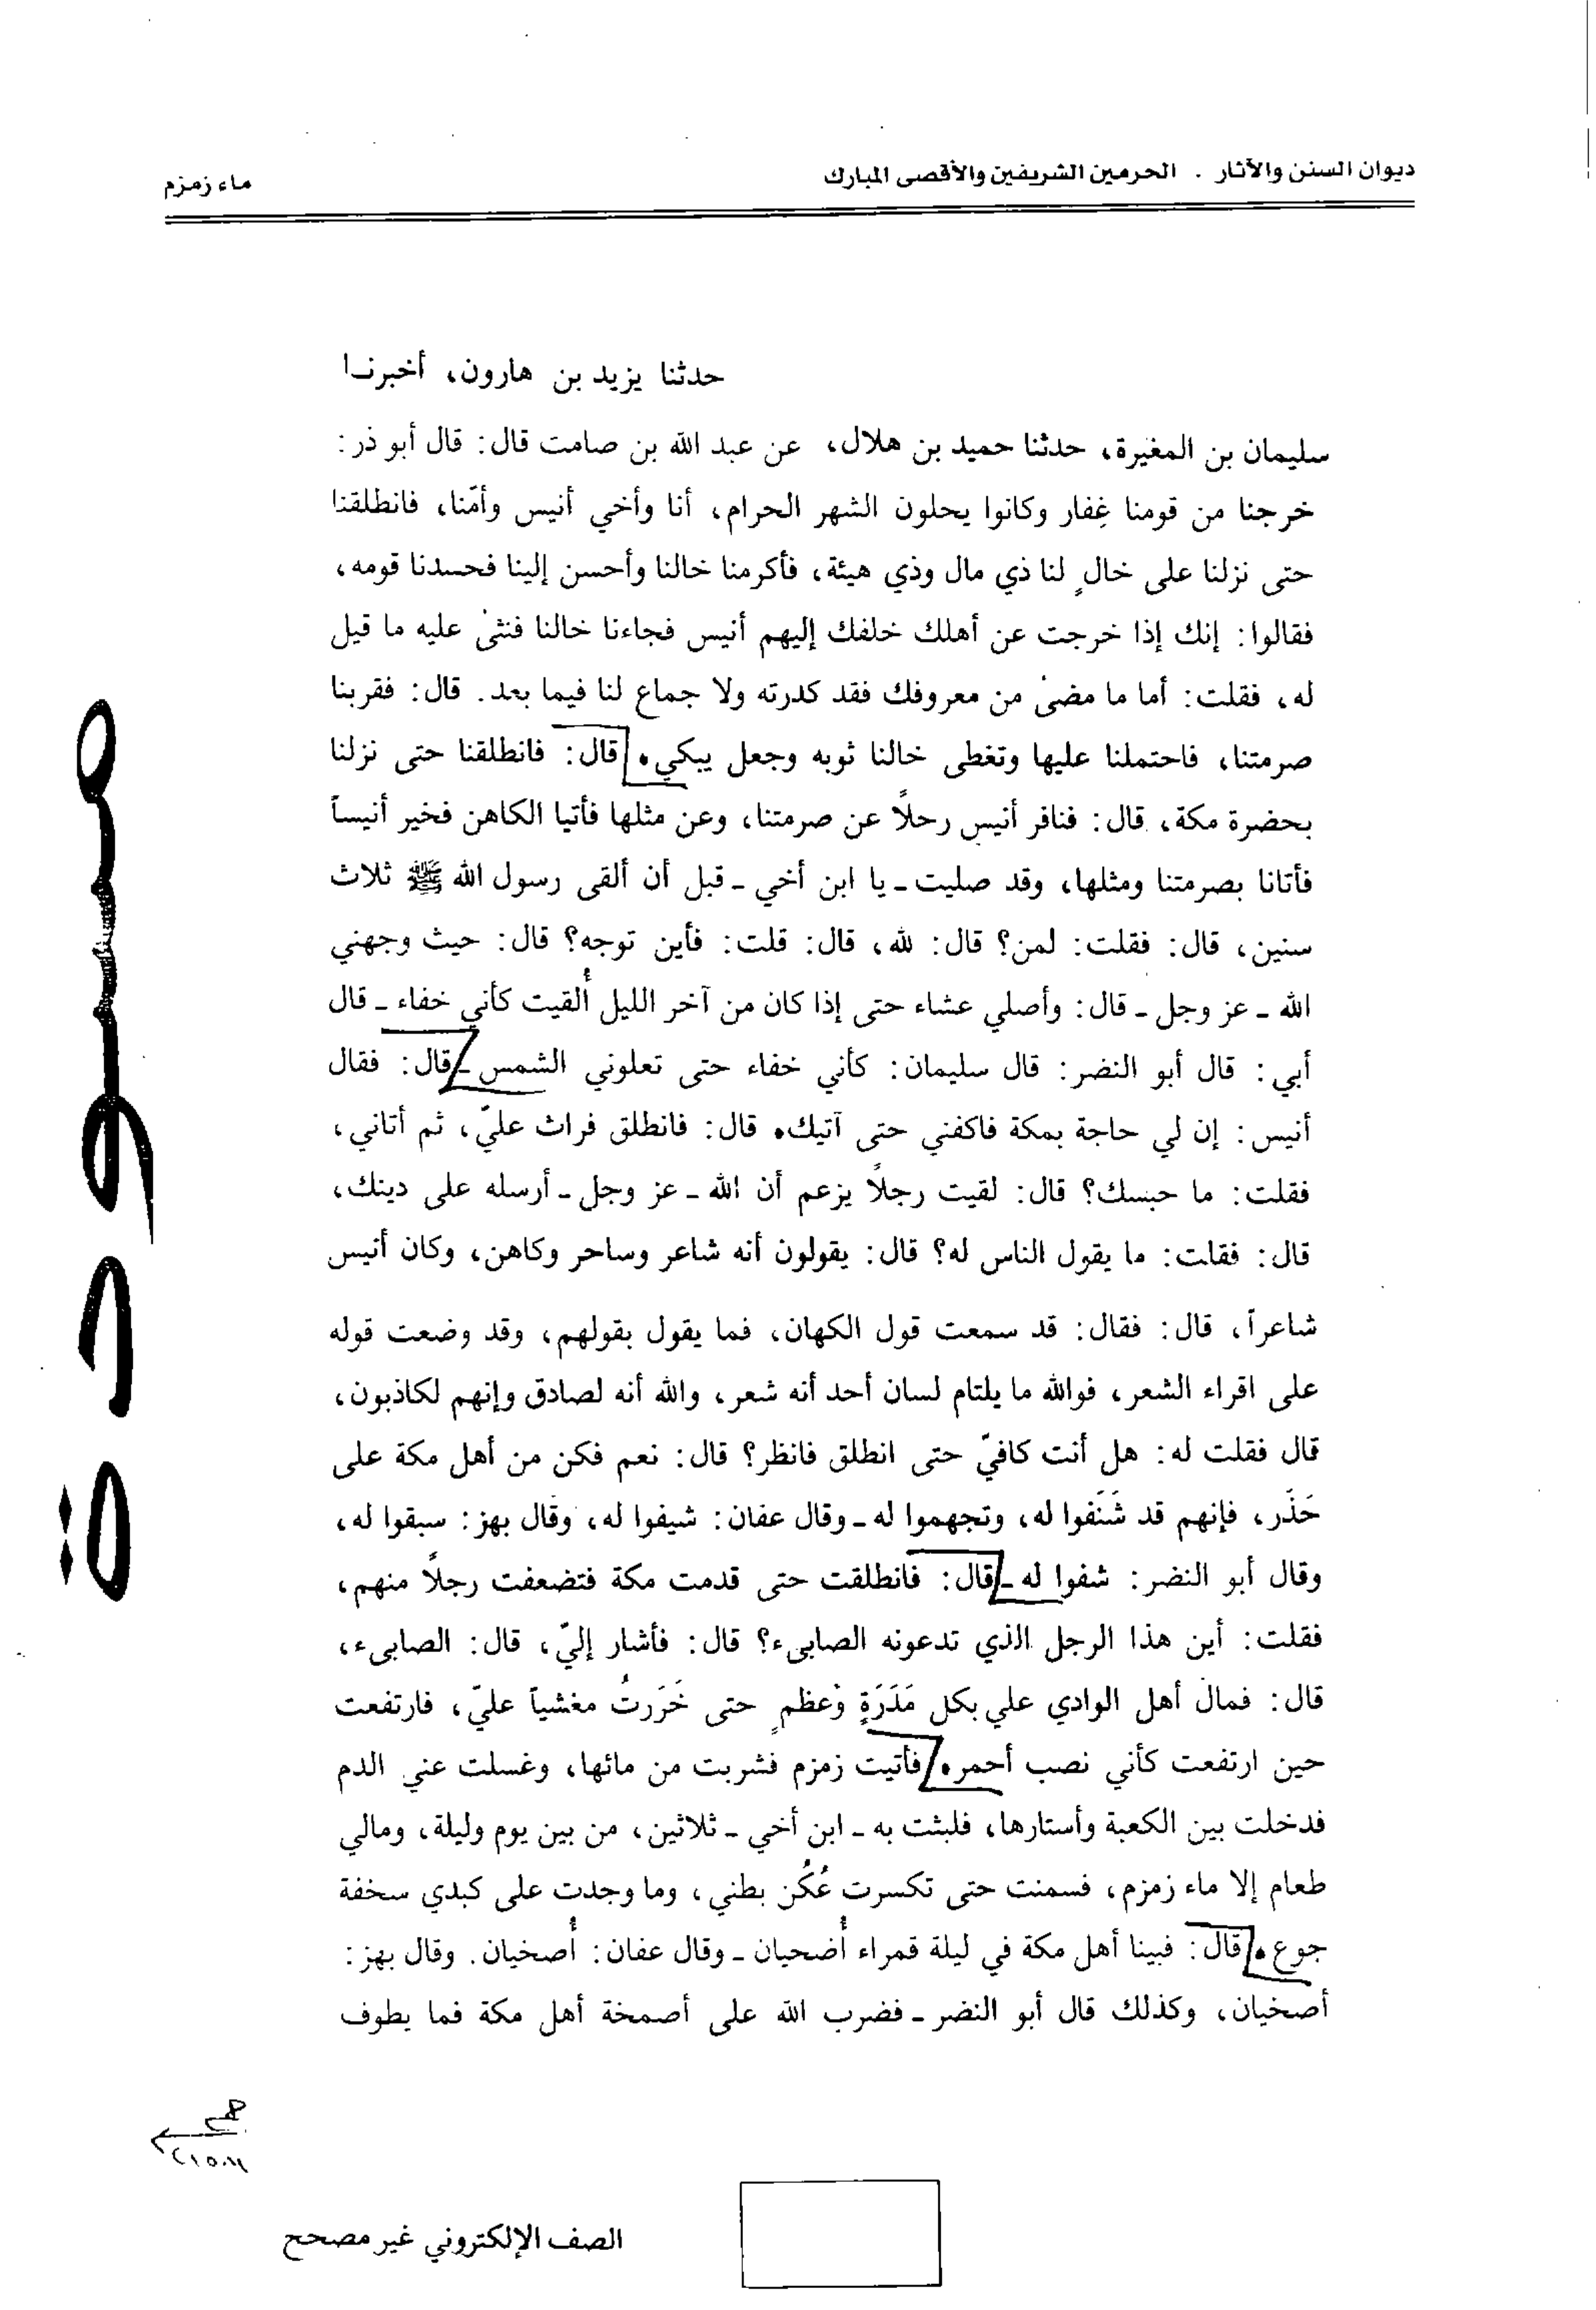 ديوان السنن والآثار . الحرمين الشريفين والأقصى المبارك
ماء زمزم
حدثنا يزيد بن هارون، أخبرنـا
سليمان بن المغيرة، حدثنا حميد بن هلال، عن عبد الله بن صامت قال: قال أبو ذر:
خرجنا من قومنا غِفار وكانوا يحلون الشهر الحرام، أنا وأخي أنيس وأمّنا، فانطلقنا
حتى نزلنا على خالٍ لنا ذي مال وذي هيئة، فأكرمنا خالنا وأحسن إلينا فحسدنا قومه،
فقالوا: إنك إذا خرجت عن أهلك خلفك إليهم أنيس فجاءنا خالنا فنثىٰ عليه ما قيل
له، فقلت: أما ما مضىٰ من معروفك فقد كدرته ولا جماع لنا فيما بعد. قال: فقربنا
صرمتنا، فاحتملنا عليها وتغطى خالنا ثوبه وجعل يبكي. قال: فانطلقنا حتى نزلنا
بحضرة مكة، قال: فنافر أنيس رحلاً عن صرمتنا، وعن مثلها فأتيا الكاهن فخير أنيساً
فأتانا بصرمتنا ومثلها، وقد صليت ـ يا ابن أخي ـ قبل أن ألقى رسول الله ﷺ ثلاث
سنين، قال: فقلت: لمن؟ قال: لله، قال: قلت: فأين توجه؟ قال: حيث وجهني
الله ـ عز وجل ـ قال: وأصلي عشاء حتى إذا كان من آخر الليل أُلقيت كأني خفاء ـ قال
أبي: قال أبو النضر: قال سليمان: كأني خفاء حتى تعلوني الشمس ـ قال: فقال
أنيس: إن لي حاجة بمكة فاكفني حتى آتيك. قال: فانطلق فراث عليّ، ثم أتاني،
فقلت: ما حبسك؟ قال: لقيت رجلاً يزعم أن الله ـ عز وجل ـ أرسله على دينك،
قال: فقلت: ما يقول الناس له؟ قال: يقولون أنه شاعر وساحر وكاهن، وكان أنيس
شاعراً، قال: فقال: قد سمعت قول الكهان، فما يقول بقولهم، وقد وضعت قوله
على اقراء الشعر، فوالله ما يلتام لسان أحد أنه شعر، والله أنه لصادق وإنهم لكاذبون،
قال فقلت له: هل أنت كافيّ حتى انطلق فانظر؟ قال: نعم فكن من أهل مكة على
حَذَر، فإنهم قد شَنَفوا له، وتجهموا له ـ وقال عفان: شيفوا له، وقال بهز: سبقوا له،
وقال أبو النضر: شفوا له ـ قال: فانطلقت حتى قدمت مكة فتضعفت رجلاً منهم،
فقلت: أين هذا الرجل الذي تدعونه الصابىء؟ قال: فأشار إليّ، قال: الصابىء،
قال: فمال أهل الوادي علي بكل مَدَرَةٍ وَعظمٍ حتى خَرَرتُ مغشياً عليّ، فارتفعت
حين ارتفعت كأني نصب أحمر. فأتيت زمزم فشربت من مائها، وغسلت عني الدم
فدخلت بين الكعبة وأستارها، فلبثت به ـ ابن أخي ـ ثلاثين، من بين يوم وليلة، ومالي
طعام إلا ماء زمزم، فسمنت حتى تكسرت عُكُن بطني، وما وجدت على كبدي سخفة
جوع. قال: فبينا أهل مكة في ليلة قمراء أُضحيان ـ وقال عفان: أُصخيان. وقال بهز:
أصخيان، وكذلك قال أبو النضر ـ فضرب الله على أصمخة أهل مكة فما يطوف
مسودة
الصف الإلكتروني غير مصحح